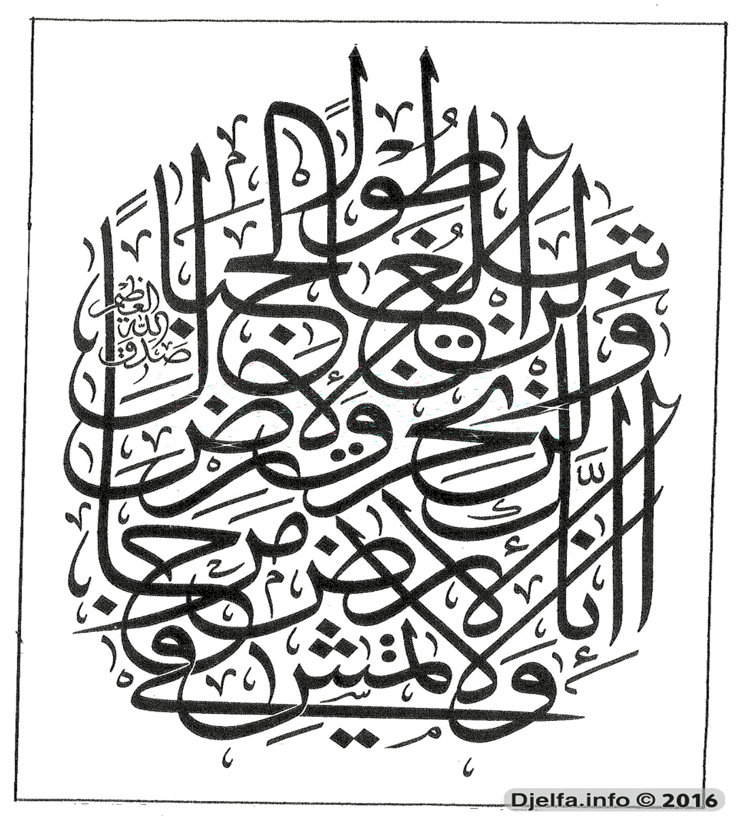 ولا تمش في
الأرض مرحا
إنك لن تخرق الأرض
ولن تبلغ الجبال
طولا
صدق الله العظيم
Djelfa.info © 2016